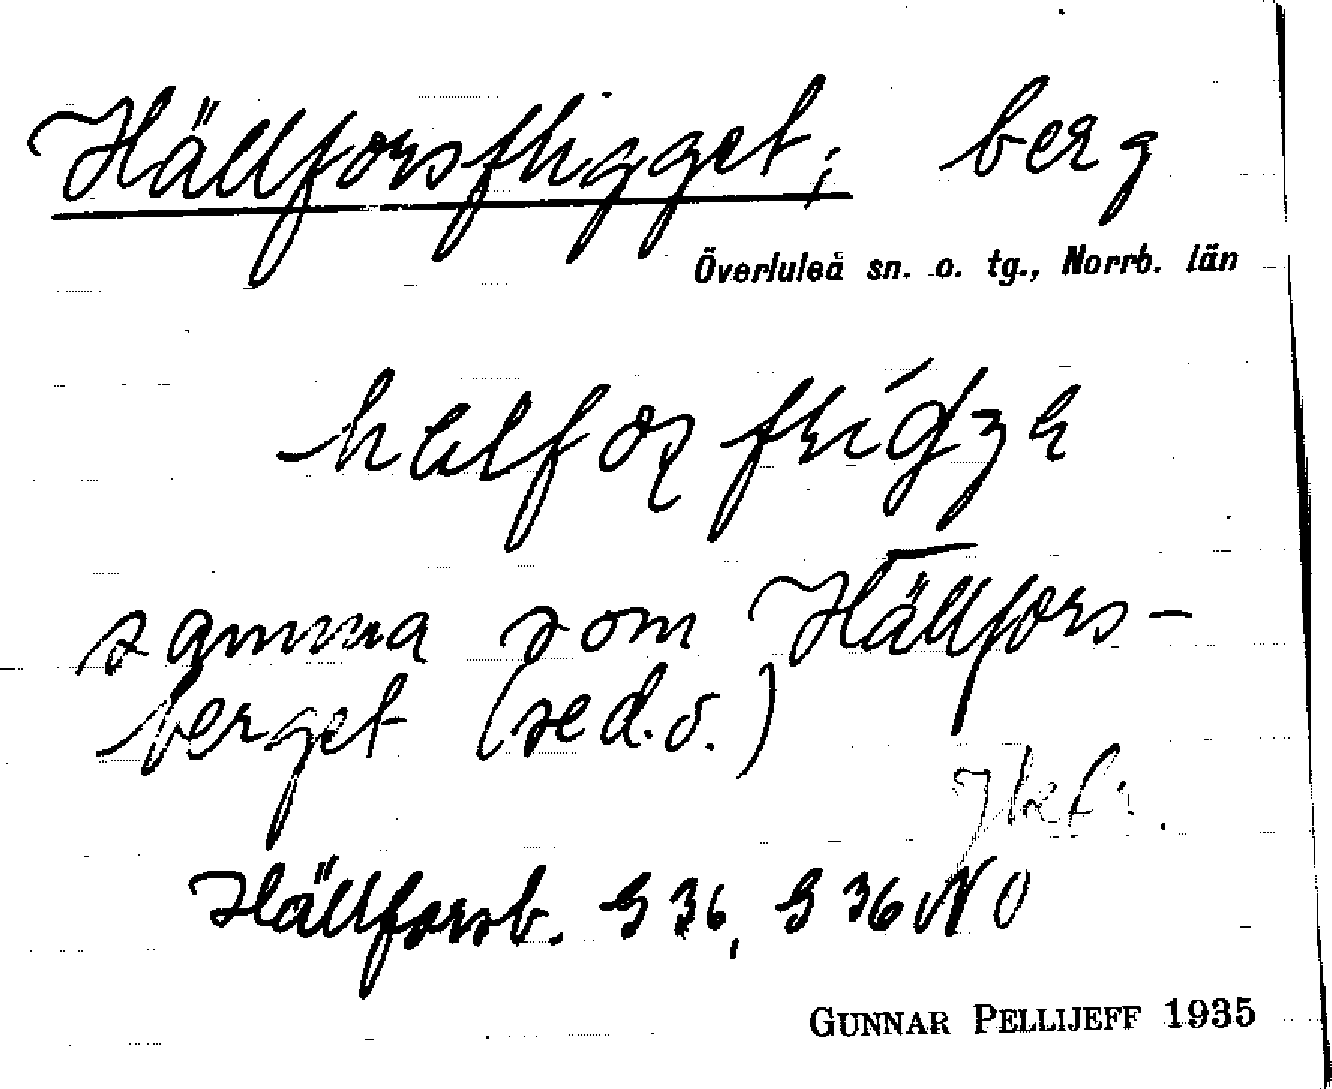 Hällforsfligget; berg
Överluleå sn. o. tg., Norrb. län
samma som Hällfors-
berget (se d. o.)
Hällforsb. G 36, G 36 NO
GUNNAR PELLIJEFF 1935